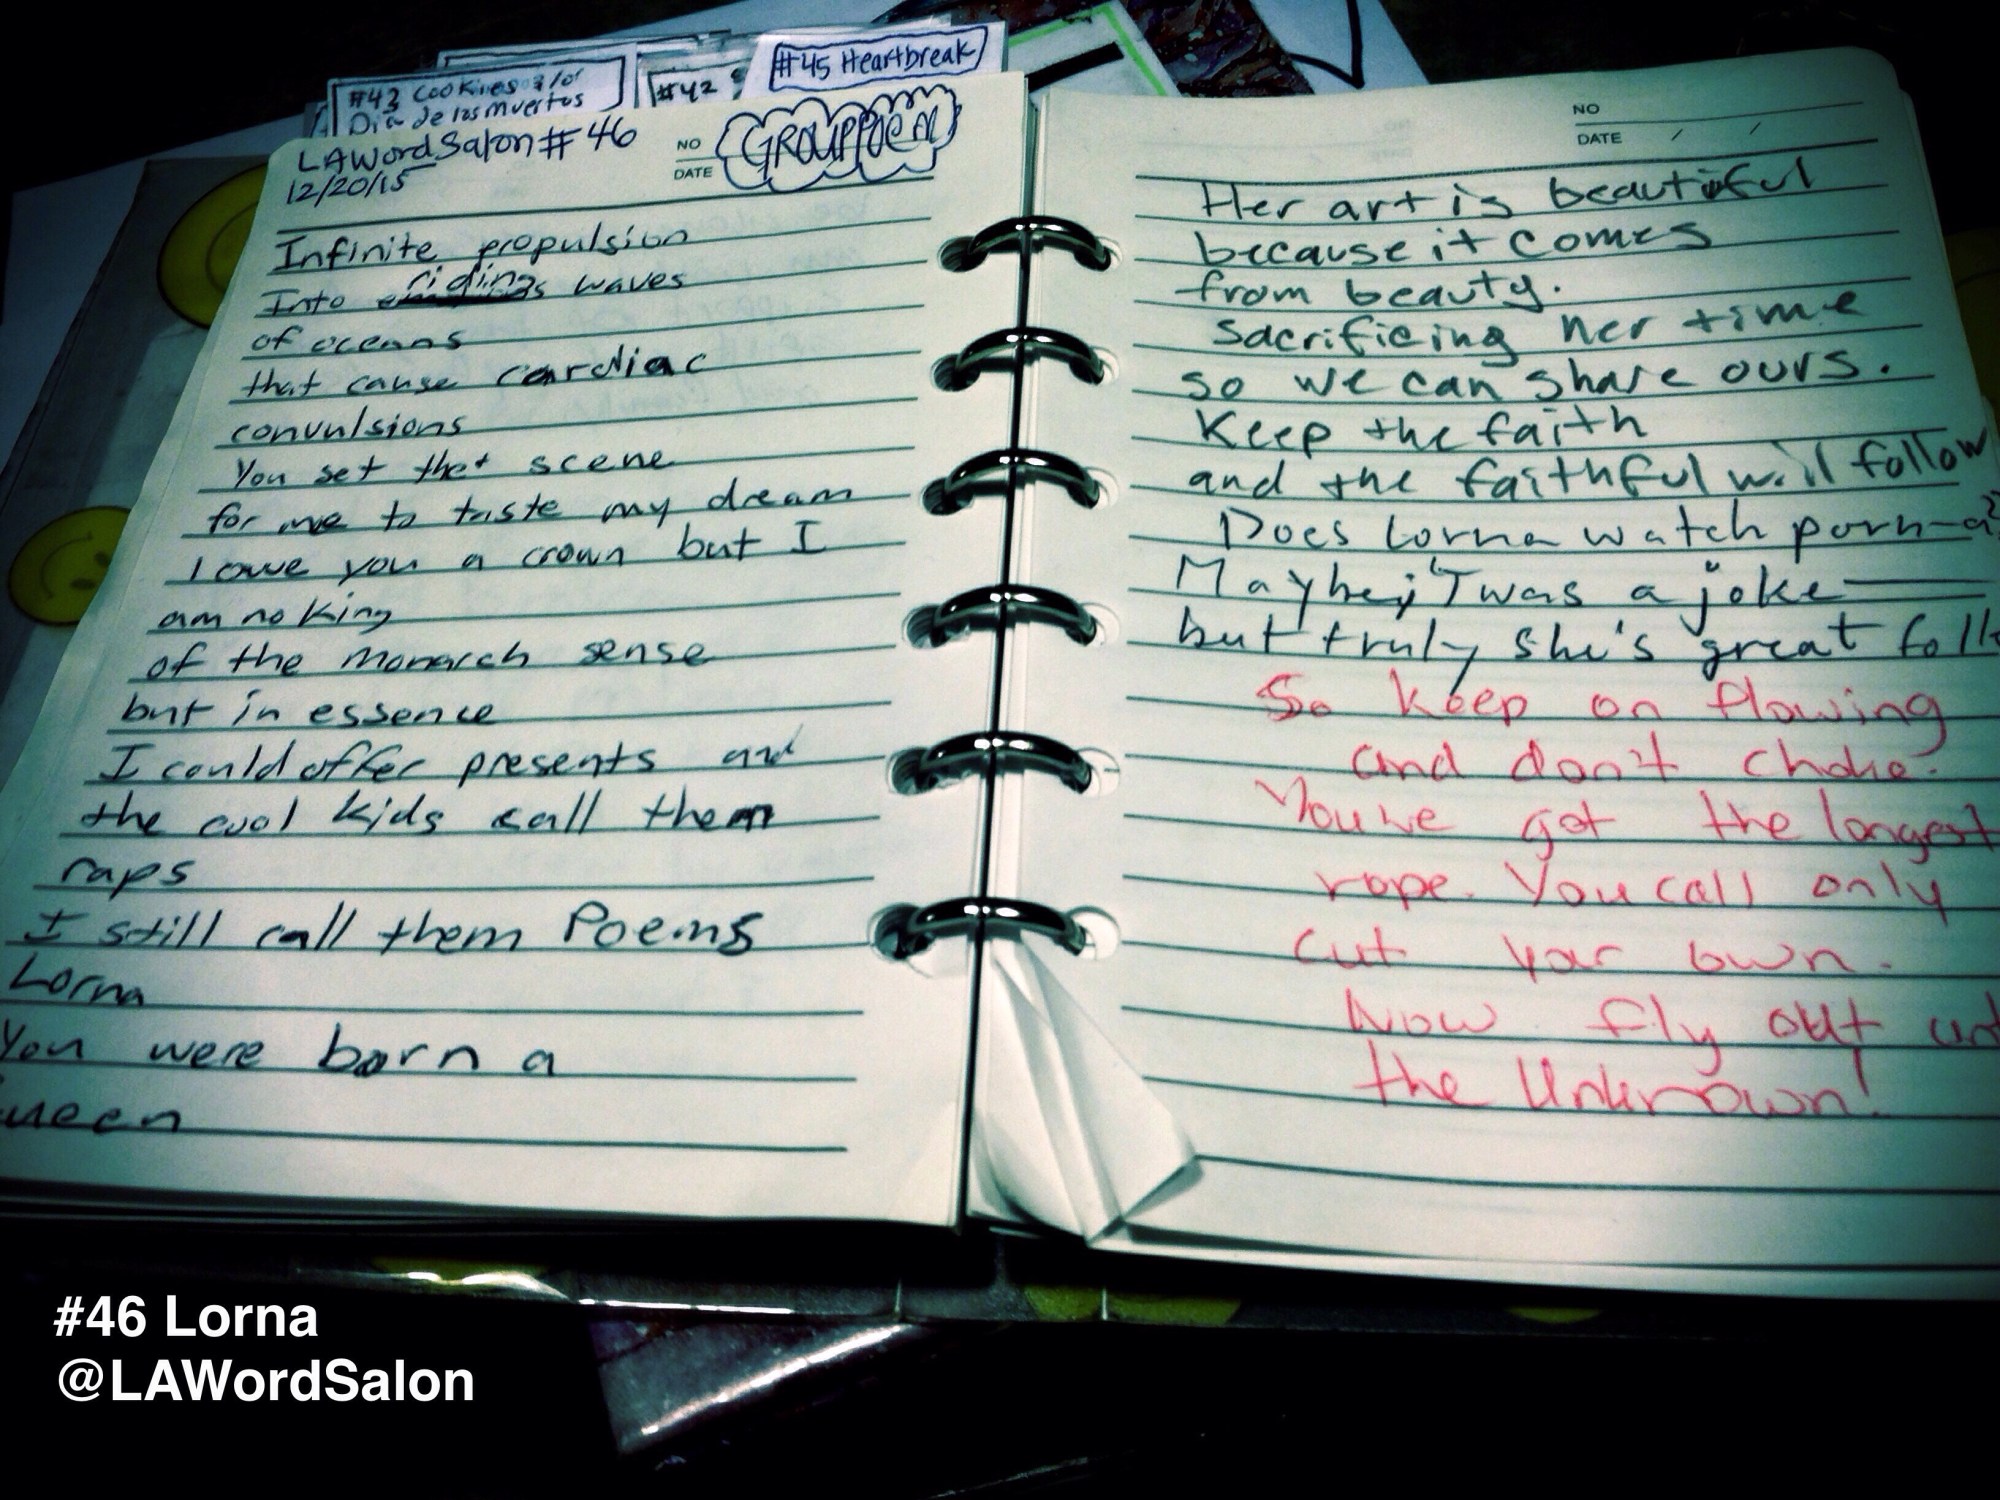 #45 Heartbreak
#43 Cookies &/or
Dia de los Muertos
#42
LAWordSalon #46
12/20/15
NO
DATE
GROUP POEM
Infinite propulsion
Into riding waves
of oceans
that cause cardiac
convulsions
You set the scene
for me to taste my dream
I owe you a crown but I
am no king
of the monarch sense
but in essence
I could offer presents and
the cool kids call them
raps
I still call them Poems
Lorna
You were born a
ueen
NO
DATE / /
Her art is beautiful
because it comes
from beauty.
Sacrificing her time
so we can share ours.
Keep the faith
and the faithful will follow
Does Lorna watch porn-a?
Maybe, 'Twas a joke —
but truly she's great folk
So keep on flowing
and don't choke.
You've got the longest
rope. You call only
cut your own.
Now fly out unt
the Unknown!
#46 Lorna
@LAWordSalon